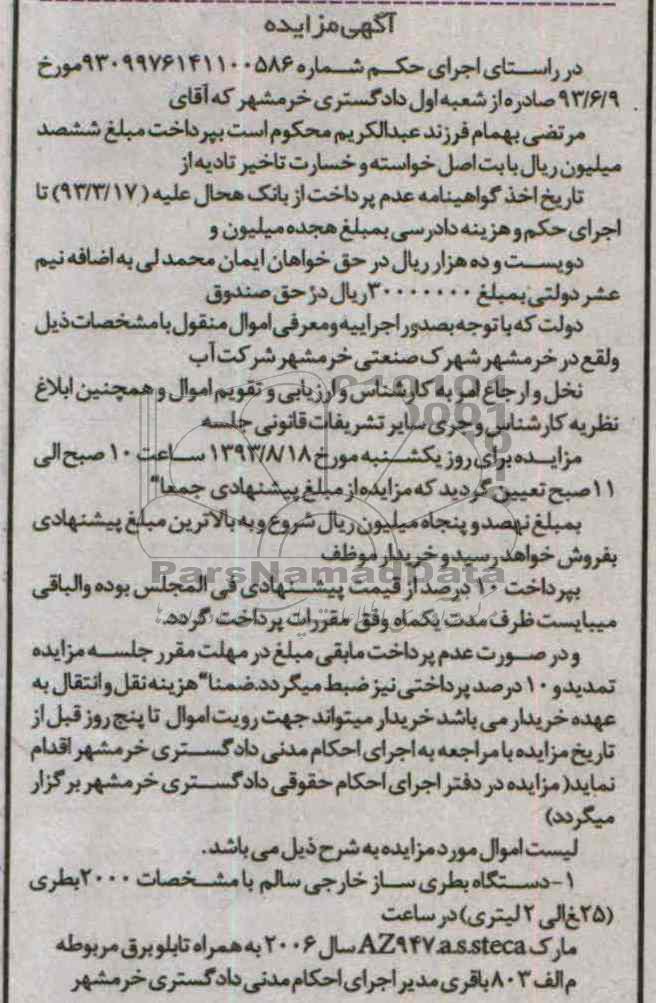 آگهی مزایده
در راستای اجرای حکم شماره ۹۳۰۹۹۷۶۱۴۱۱۰۰۵۸۶مورخ
۹۳/۶/۹ صادره از شعبه اول دادگستری خرمشهر که آقای
مرتضی بهمام فرزند عبدالکریم محکوم است بپرداخت مبلغ ششصد
میلیون ریال بابت اصل خواسته و خسارت تاخیر تادیه از
تاریخ اخذ گواهینامه عدم پرداخت از بانک هحال علیه (۹۳/۳/۱۷) تا
اجرای حکم و هزینه دادرسی بمبلغ هجده میلیون و
دویست و ده هزار ریال در حق خواهان ایمان محمد لی به اضافه نیم
عشر دولتی بمبلغ ۳۰۰۰۰۰۰۰ریال در حق صندوق
دولت که با توجه بصدور اجراییه ومعرفی اموال منقول با مشخصات ذیل
ولقع در خرمشهر شهرک صنعتی خرمشهر شرکت آب
نخل و ارجاع امر به کارشناس و ارزیابی و تقویم اموال و همچنین ابلاغ
نظریه کارشناس وجری سایر تشریفات قانونی جلسه
مزایده برای روز یکشنبه مورخ ۱۳۹۳/۸/۱۸ ساعت ۱۰ صبح الی
۱۱صبح تعیین گردید که مزایده از مبلغ پیشنهادی جمعا"
بمبلغ نهصد و پنجاه میلیون ریال شروع و به بالاترین مبلغ پیشنهادی
بفروش خواهد رسید و خریدار موظف
ParsNamadData
بپرداخت ۱۰ درصد از قیمت پیشنهادی فی المجلس بوده والباقی
میبایست ظرف مدت یکماه وفق مقررات پرداخت گردد.
و در صورت عدم پرداخت مابقی مبلغ در مهلت مقرر جلسه مزایده
تمدید و ۱۰ درصد پرداختی نیز ضبط میگردد.ضمنا"هزینه نقل و انتقال به
عهده خریدار می باشد خریدار میتواند جهت رویت اموال تا پنج روز قبل از
تاریخ مزایده با مراجعه به اجرای احکام مدنی دادگستری خرمشهر اقدام
نماید( مزایده در دفتر اجرای احکام حقوقی دادگستری خرمشهر برگزار
میگردد)
لیست اموال مورد مزایده به شرح ذیل می باشد.
۱-دستگاه بطری ساز خارجی سالم با مشخصات ۲۰۰۰بطری
(۲۵غ الی ۲ لیتری) در ساعت
مارک AZ۹۴۷.a.s.steca سال ۲۰۰۶ به همراه تابلو برق مربوطه
م الف ۸۰۳ باقری مدیر اجرای احکام مدنی دادگستری خرمشهر